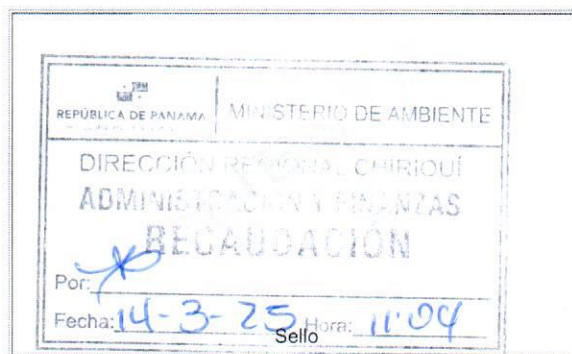 REPÚBLICA DE PANAMÁ
MINISTERIO DE AMBIENTE
DIRECCIÓN REGIONAL CHIRIQUÍ
ADMINISTRACIÓN Y FINANZAS
RECAUDACIÓN
Por:
Fecha: 14-3-25 Hora: 11:04
Sello